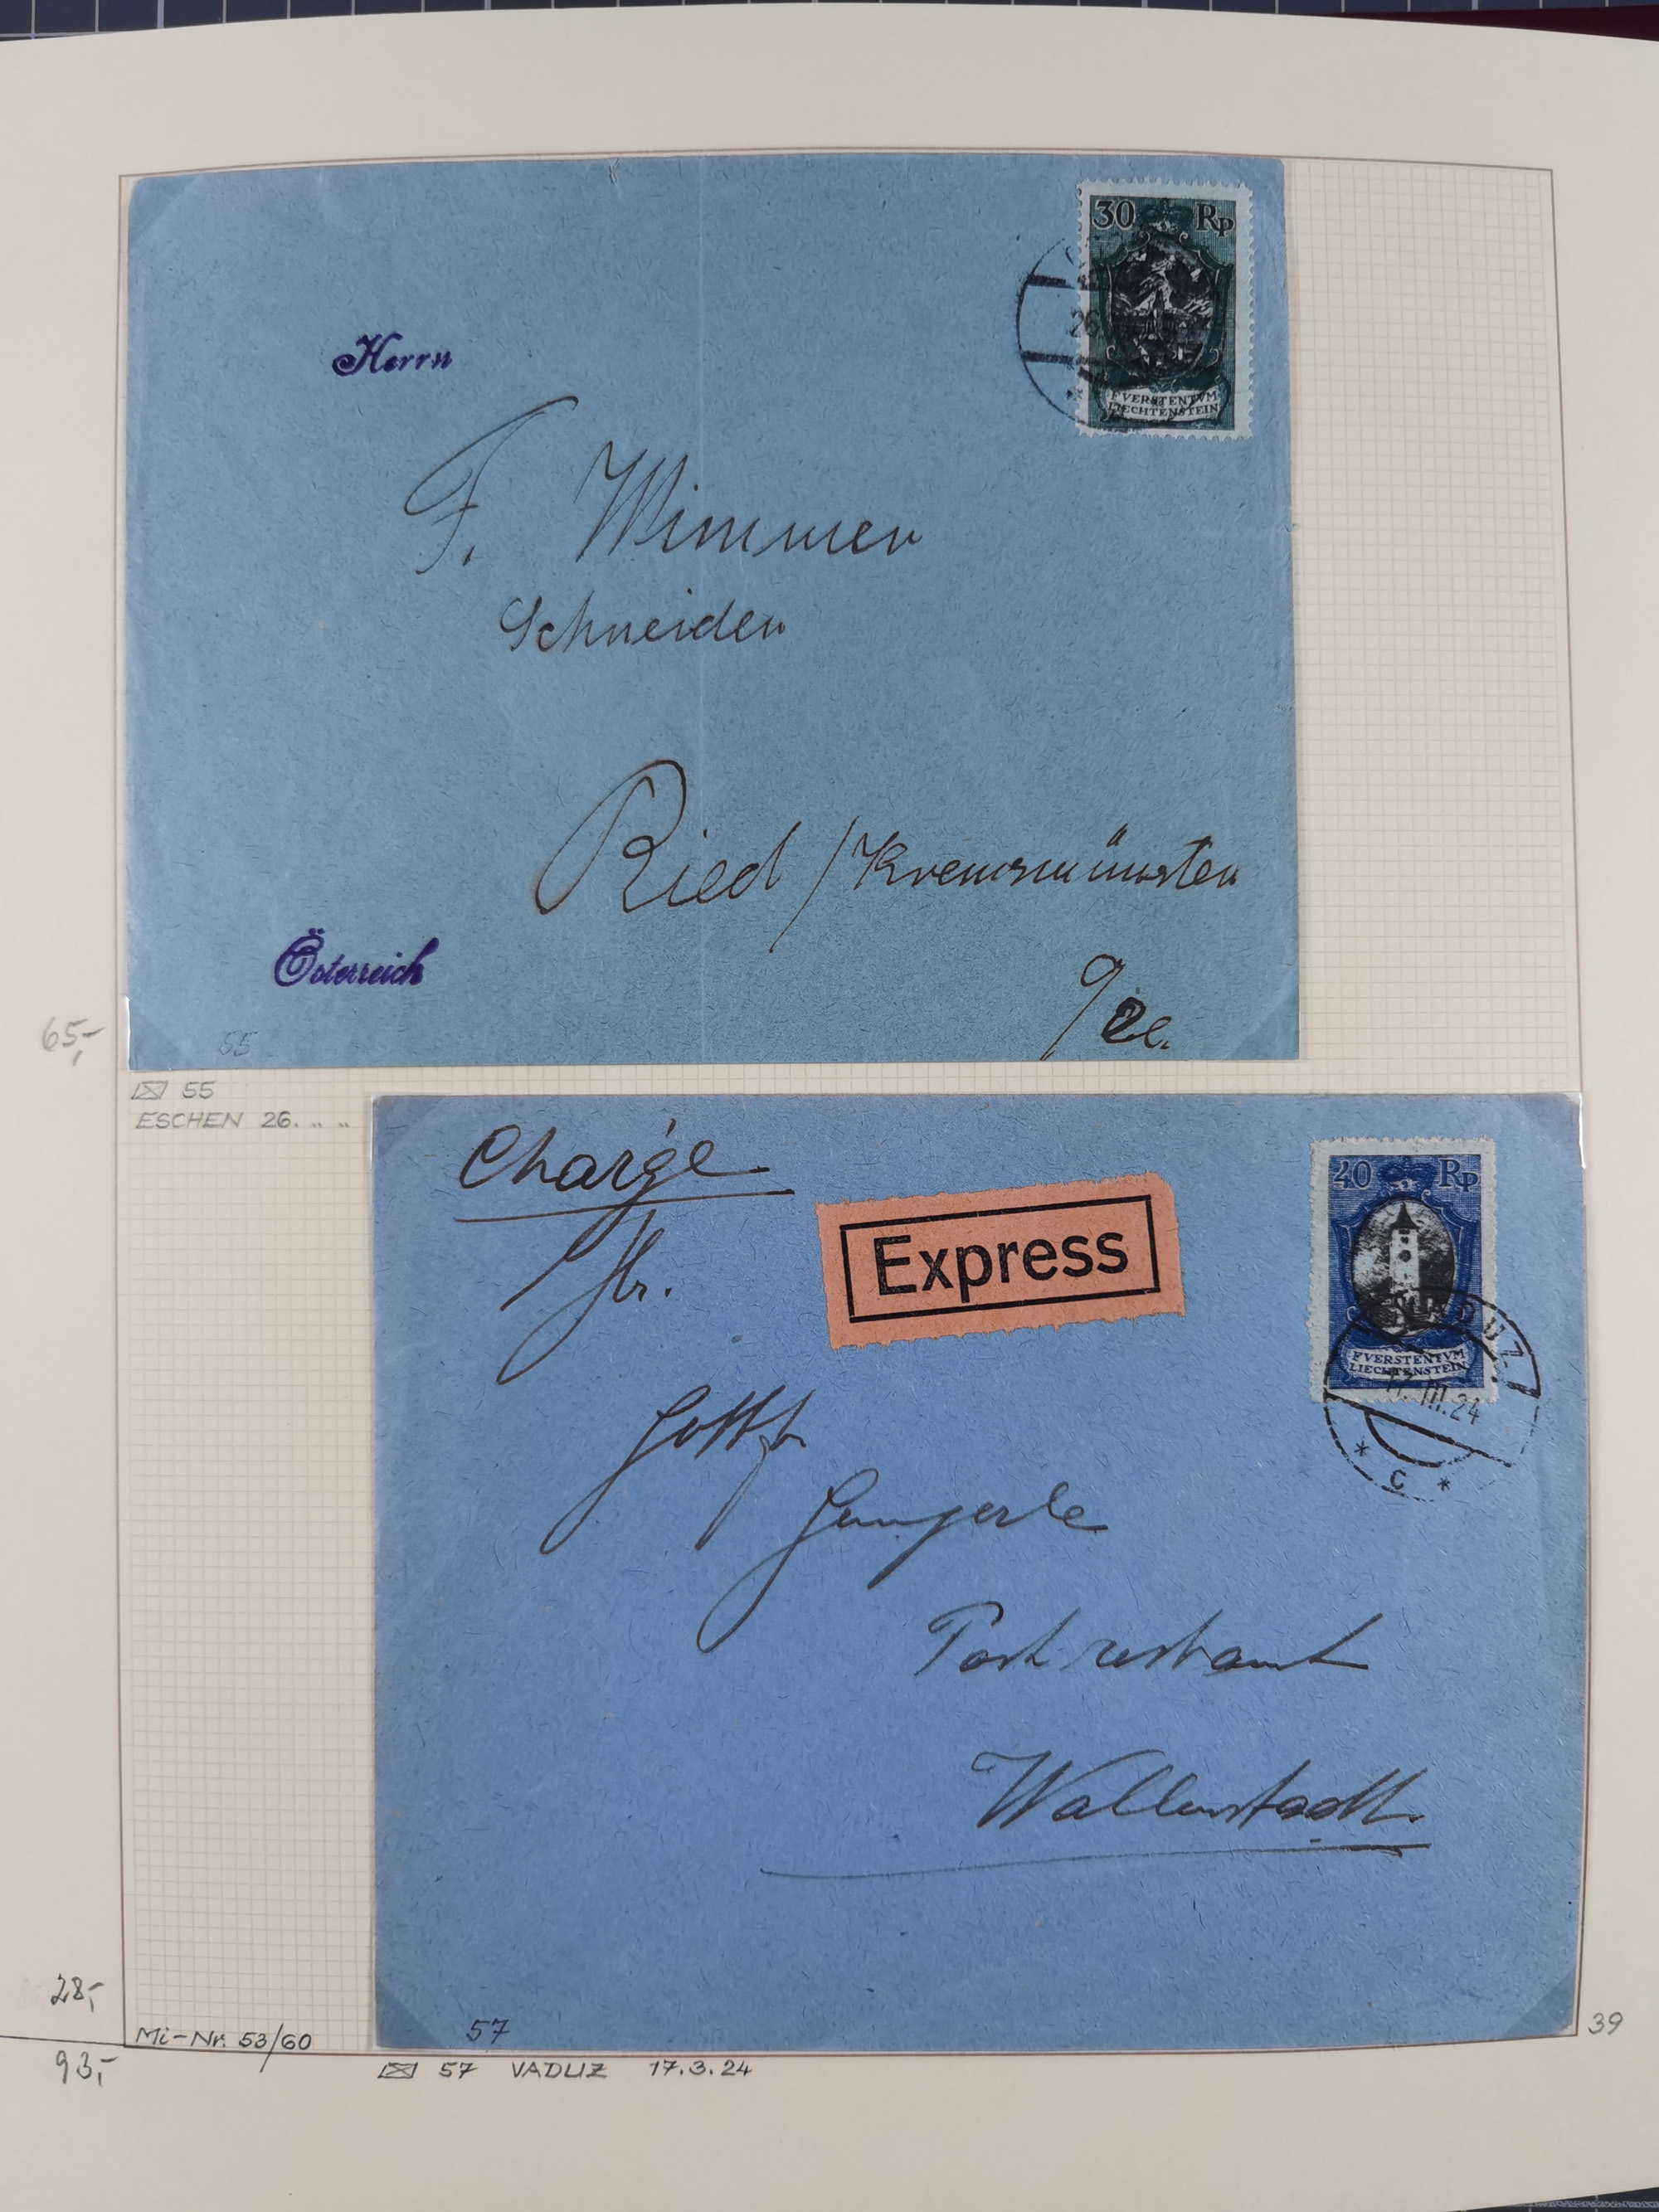 30 Rp
26
FVERSTENTVM
LIECHTENSTEIN
Herrn
F. Wimmer
Schneider
Ried / Kremsmünster
Österreich
55
65,-
55
ESCHEN 26. .. ..
Chargé
Hr.
Express
40 Rp
FVERSTENTVM
LIECHTENSTEIN
VADUZ
17.III.24
* C *
Gottfr.
Post restant
Wallenstadt.
57
28,-
Mi-Nr. 53/60
39
93,-
57 VADUZ 17.3.24